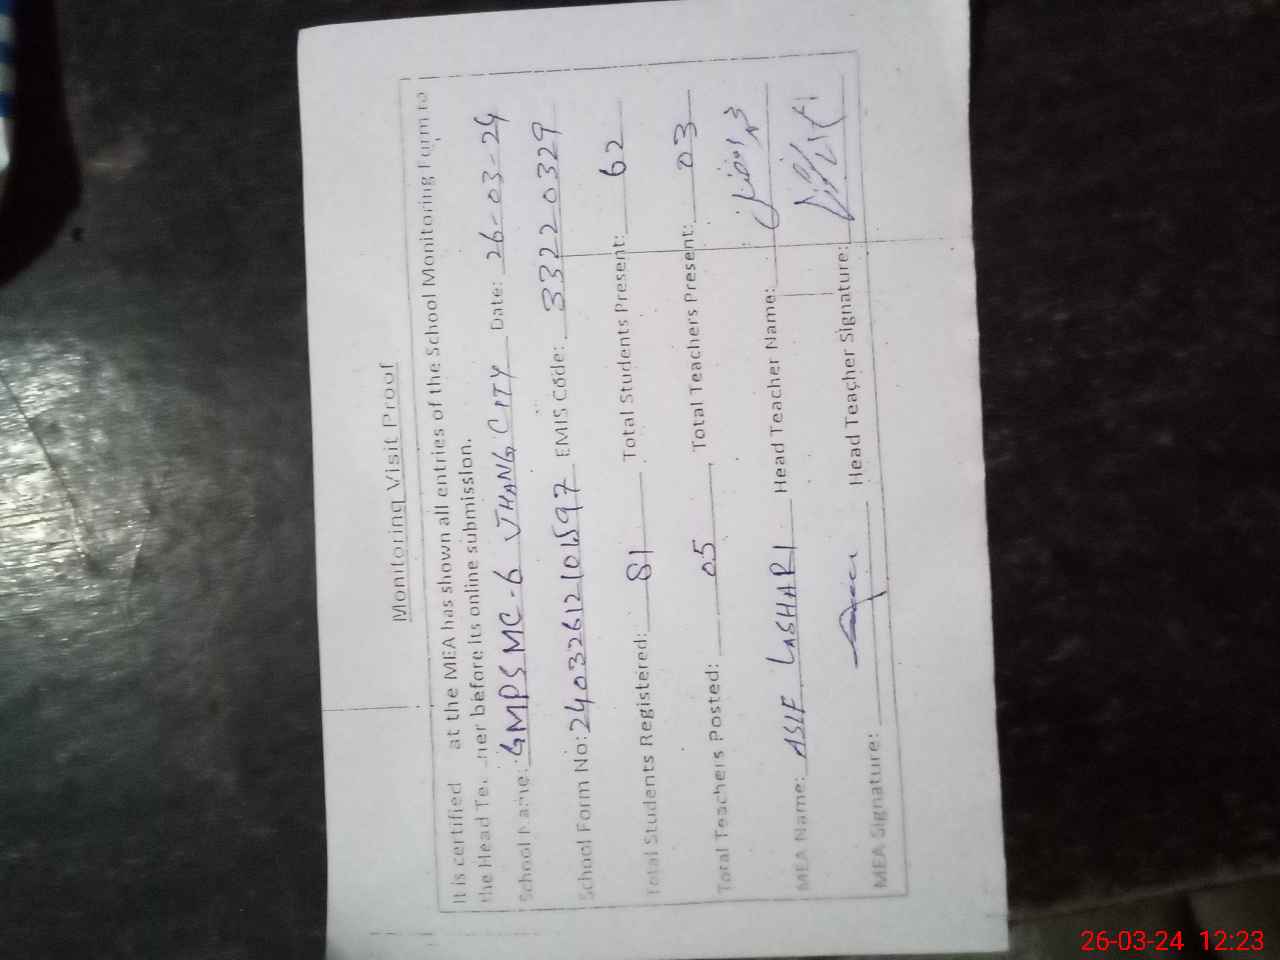 Monitoring Visit Proof
It is certified at the MEA has shown all entries of the School Monitoring Form to
the Head before its online submission.
School Name: GMPS MC-6 JHANG CITY Date: 26-03-24
School Form No: EMIS Code: 33220329
Total Students Registered: 81 Total Students Present: 62
Total Teachers Posted: 05 Total Teachers Present: 03
MEA Name: ASIF LASHARI Head Teacher Name:
MEA Signature: Head Teacher Signature:
26-03-24 12:23